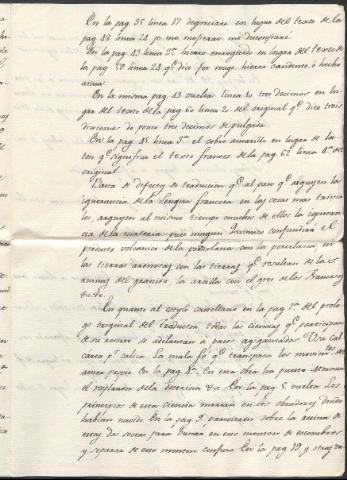 En la pag 35 linea 17 depreciare en lugar del texto de la
pag 48 linea 24 je me mepriser. me despreciaré
En la pag 43 linea 2ª hierro enrogecido en lugar del texto de
la pag 50 linea 24 qᵉ dice fer rouge, hierro candente, ó hecho
ascua
En la misma pag 43 vuelta linea 10 tres decimos en lu
gar del texto de la pag 60 linea 20 del original qᵉ dice trois
dixiemes de pouce tres decimos de pulgada
En la pag 45 linea 3ª el cobre amarillo en lugar de la
ton qᵉ significa el texto frances de la pag 62 linea 4ª del
original
Basta de defectos de traducion qᵉ al paso qᵉ arguyen la
ignorancia de la lengua francesa en las cosas mas trivia
les, arguyen al mismo tiempo muchos de ellos la ignoran
cia de la materia: pues ningun Quimico confundirá el
producto volcanico de la porcelana con la porcelana, ni
las tierras arenosas con las tierras qᵉ resultan de las
ruinas del granito, la arcilla con el gres de los Franceses
En quanto al estylo castellano en la pag 1ª del prolo
go original del traductor todas las ciencias qᵉ participan
de su recurso se adelantan à pasos agigantados. Otra cal
carea pʳ caliza. La mala fe qᵉ
En la pag 4ª. En esta obra ha puesto
el resplandor de la En la pag 5 vuelta Los
principios de esta ciencia miraran en los obradores donde
habian nacido En la pag 9 parecieron sobre la ruina de
estos
y separar de ese monton confuso En la pag 19 y